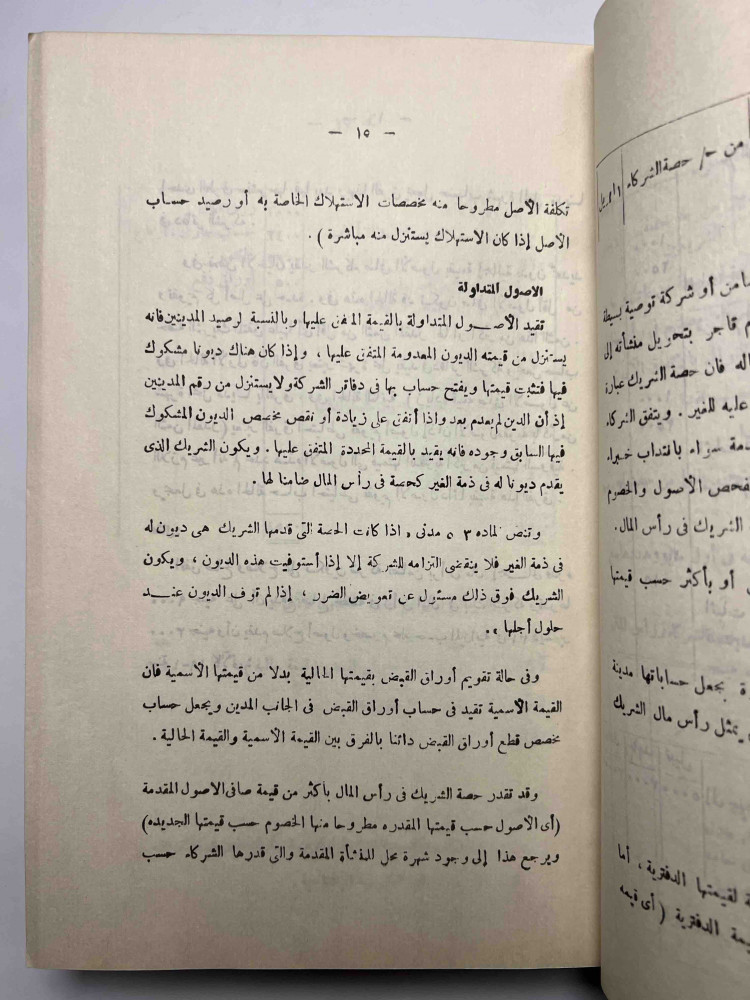 — ١٥ —
تكلفة الأصل مطروحا منه مخصصات الاستهلاك الخاصة به أو رصيد حساب
الأصل إذا كان الاستهلاك يستنزل منه مباشرة ) .
الاصول المتداولة
تقيد الأصــول المتداولة بالقيمة المتفق عليها وبالنسبة لرصيد المدينين فانه
يستنزل من قيمته الديون المعدومة المتفق عليها ، وإذا كان هناك ديونا مشكوك
فيها فتثبت قيمتها ويفتح حساب بها فى دفاتر الشركة ولا يستنزل من رقم المدينين
إذ أن الدين لم يعدم بعد واذا أتفق على زيادة أو نقص مخصص الديون المشكوك
فيها السابق وجوده فانه يقيد بالقيمة المحددة المتفق عليها . ويكون الشريك الذى
يقدم ديونا له فى ذمة الغير كحصة فى رأس المال ضامنا لها .
وتنص لماده ٥٠٣ مدنى « اذا كانت الحصة التى قدمها الشريك هى ديون له
فى ذمة الغير فلا ينقضى التزامه للشركة إلا إذا أستوفيت هذه الديون ، ويكون
الشريك فوق ذلك مسئول عن تعويض الضرر ، إذا لم توف الديون عنـــد
حلول أجلها » .
وفى حالة تقويم أوراق القبض بقيمتها الحالية بدلا من قيمتها الأسمية فان
القيمة الأسمية تقيد فى حساب أوراق القبض فى الجانب المدين ويجعل حساب
مخصص قطع أوراق القبض دائنا بالفرق بين القيمة الأسمية والقيمة الحالية .
وقد تقدر حصة الشريك فى رأس المال بأكثر من قيمة صافى الاصول المقدمة
(أى الأصول حسب قيمتها المقدره مطروحا منها الخصوم حسب قيمتها الجديده)
ويرجع هذا إلى وجود شهرة محل للمنشأة المقدمة والتى قدرها الشركاء حسب
من ح/ حصة الشركاء
أو شركة توصية بسيطة
تاجر بتحويل منشأته إلى
فان حصة الشريك عبارة
عليه للغير . ويتفق الشركاء
سواء بانتداب خبراء
الأصول والخصوم
الشريك فى رأس المال .
أو بأكثر حسب قيمتها
يجعل حساباتها مدينة
يمثل رأس مال الشريك
لقيمتها الدفترية ، أما
الدفترية (أى قيمه